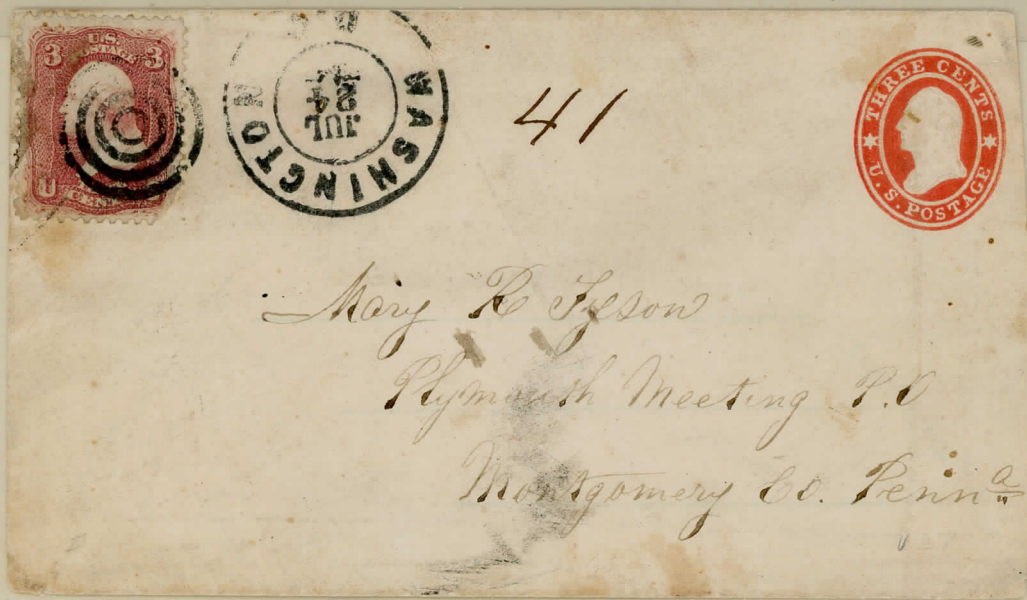 3 U.S. POSTAGE 3
U
WASHINGTON
JUL
24
41
THREE CENTS
U.S. POSTAGE
Mary R Tyson
Plymouth Meeting P.O
Montgomery Co. Penna